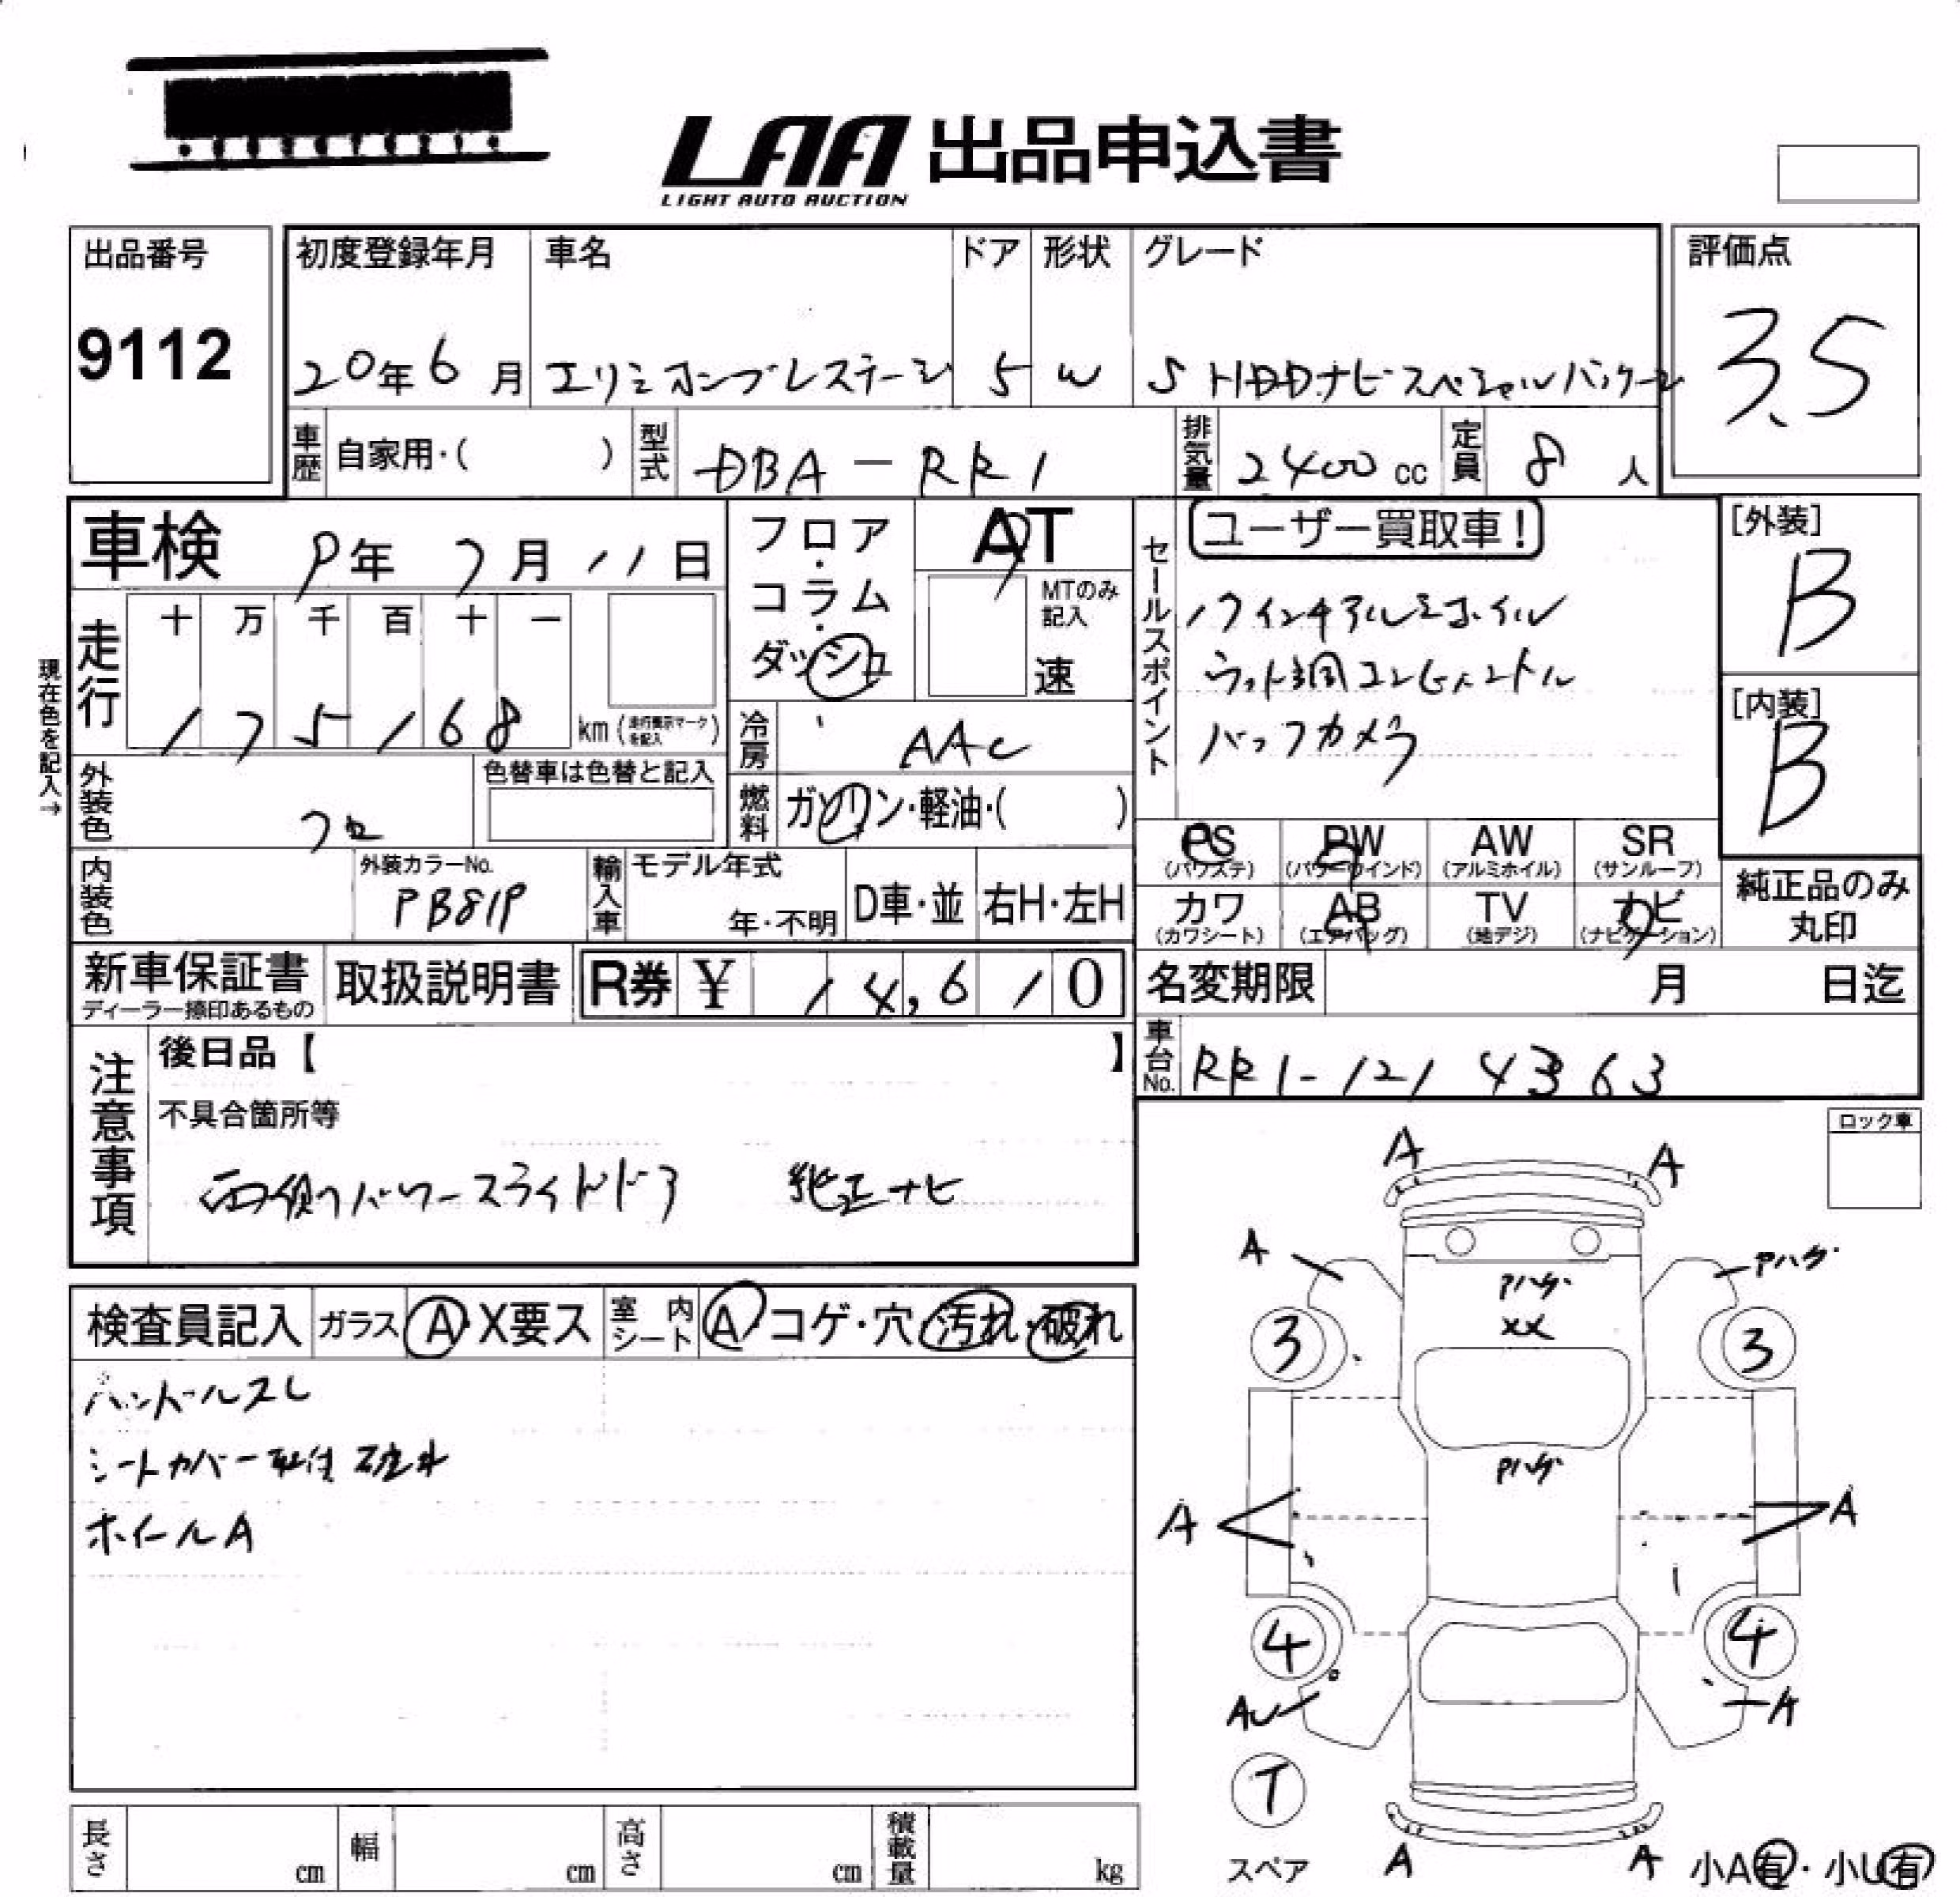 LAA 出品申込書
LIGHT AUTO AUCTION
出品番号
9112
初度登録年月
20年6月
車名
エリシオンプレステージ
ドア
5
形状
W
グレード
S HDDナビスペシャルパッケージ
評価点
3.5
車歴 自家用・( )
型式 DBA-RR1
排気量 2400cc
定員 8人
車検 9年7月11日
現在色を記入→
走行 十 万 千 百 十 一
175168 km (走行表示マークを記入)
外装色 クロ
色替車は色替と記入
内装色
外装カラーNo.
PB81P
輸入車 モデル年式
年・不明
D車・並
右H・左H
フロア・コラム・ダッシュ
AT
MTのみ記入
速
冷房 AAC
燃料 ガソリン・軽油・( )
セールスポイント
ユーザー買取車!
17インチアルミホイル
ウッド調コンビハンドル
バックカメラ
[外装]
B
[内装]
B
PS (パワステ)
PW (パワーウインド)
AW (アルミホイル)
SR (サンルーフ)
カワ (カワシート)
AB (エアバッグ)
TV (地デジ)
ナビ (ナビゲーション)
純正品のみ丸印
新車保証書
ディーラー捺印あるもの
取扱説明書
R券 ¥ 14,610
名変期限 月 日迄
車台No. RR1-1214363
注意事項
後日品【 】
不具合箇所等
両側パワースライドドア 純正ナビ
ロック車
検査員記入
ガラス A・X要ス
室内シート A コゲ・穴・汚れ・破れ
ハンドルスレ
シートカバー取付破れ
ホイールA
A A
A Pハゲ
Pハゲ
XX
3 3
Pハゲ
A A
4 4
AU A
T
スペア
A A
小A有・小U有
長さ cm
幅 cm
高さ cm
積載量 kg